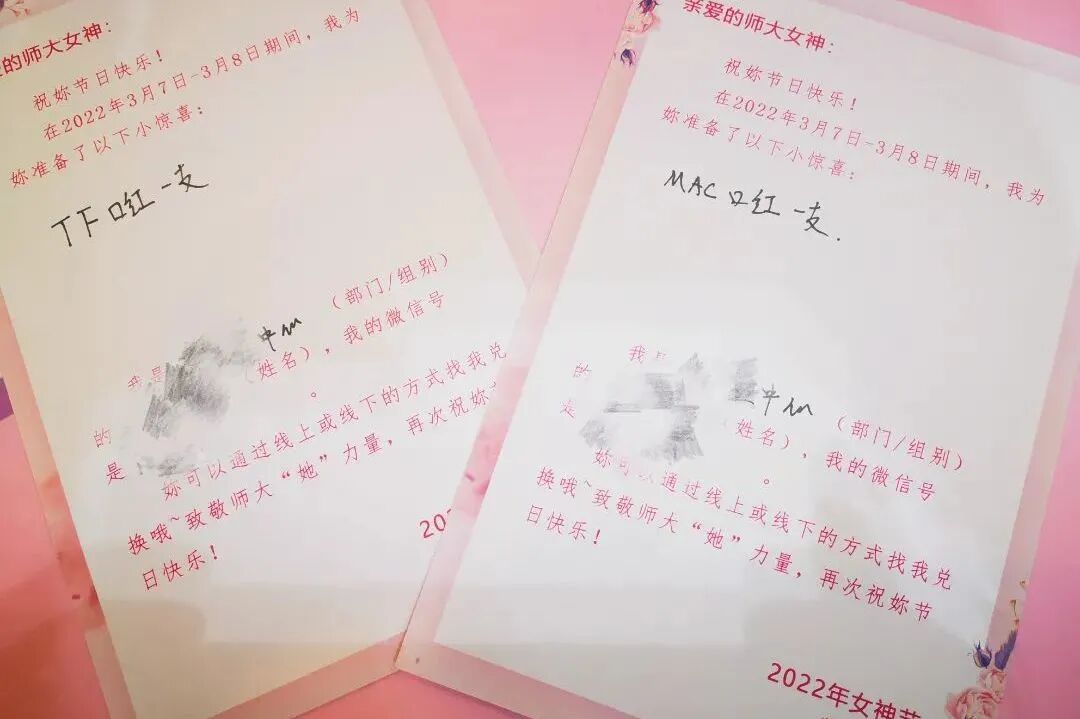 的师大女神：
祝妳节日快乐！
在2022年3月7日-3月8日期间，我为
妳准备了以下小惊喜：
TF口红一支
（部门/组别）
我是
（姓名），我的微信号
的
是
。
妳可以通过线上或线下的方式找我兑
换哦~致敬师大“她”力量，再次祝妳
日快乐！
202
亲爱的师大女神：
祝妳节日快乐！
在2022年3月7日-3月8日期间，我为
妳准备了以下小惊喜：
MAC口红一支.
我是
（部门/组别）
的
（姓名），我的微信号
是
。
妳可以通过线上或线下的方式找我兑
换哦~致敬师大“她”力量，再次祝妳节
日快乐！
2022年女神节